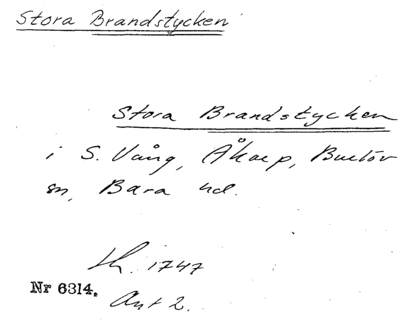 Stora Brandstycken
Stora Brandstycken
i S. Vång, Åkarp, Burlöv
sn, Bara hd.
Lh. 1747
Nr 6314.
Akt 2.